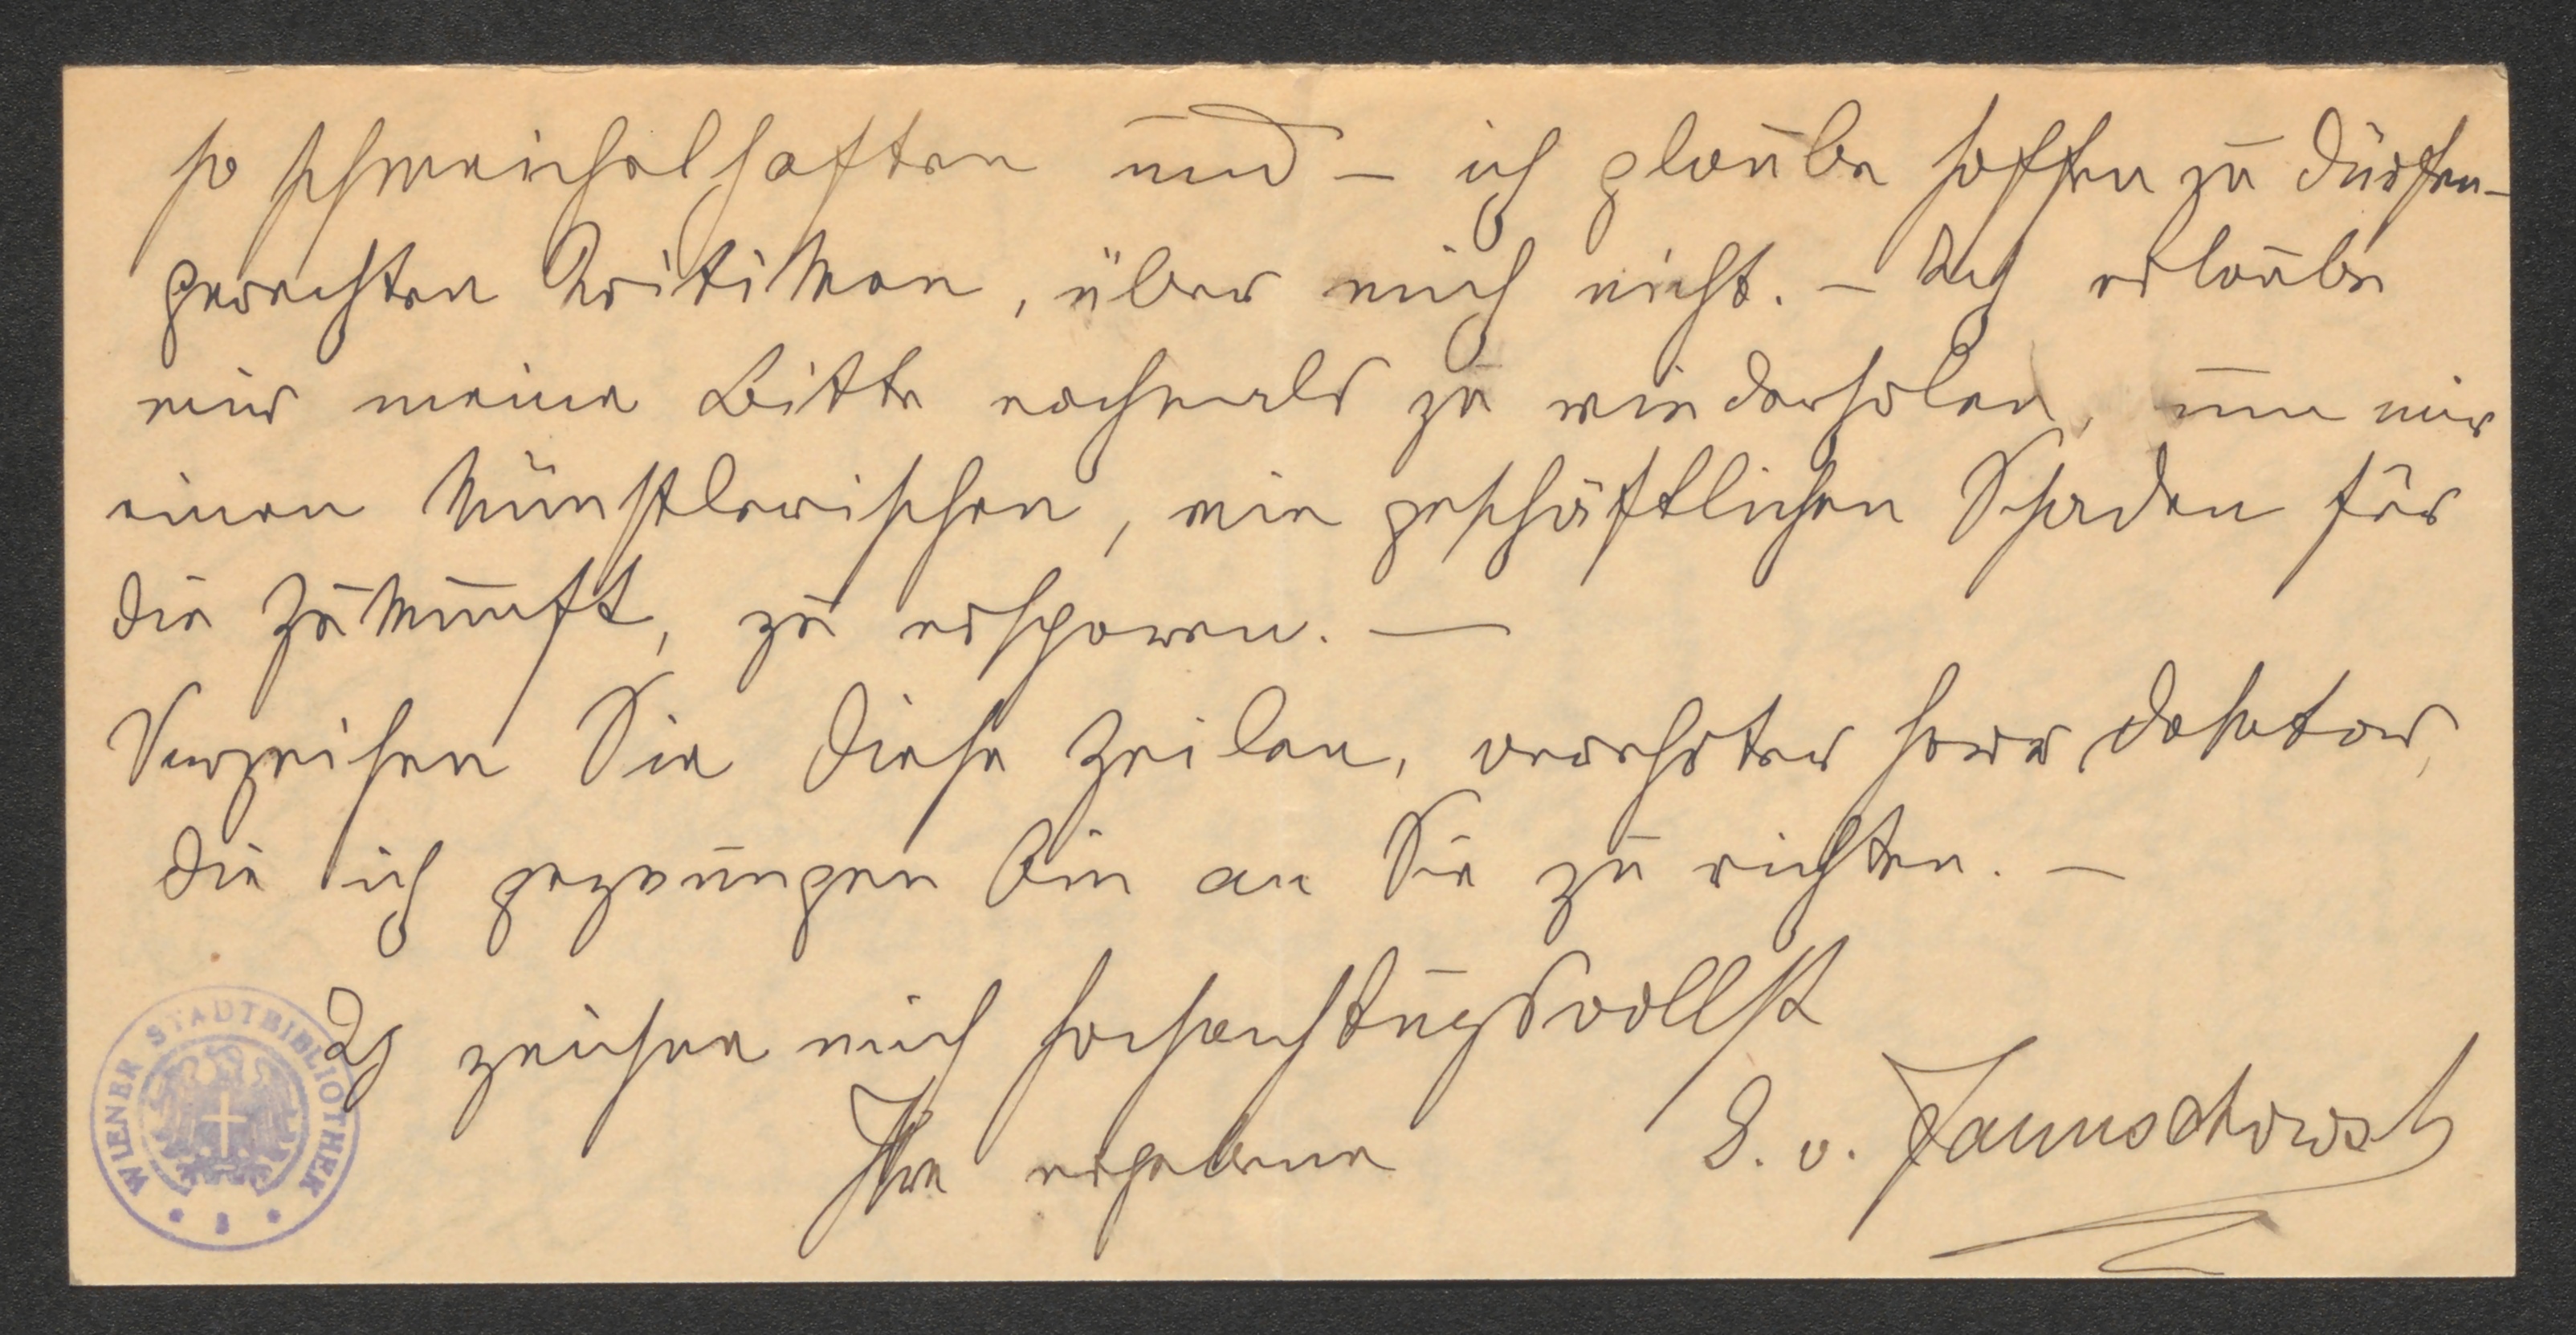 so schmeichelhaften und – ich glaube hoffen zu dürfen –
gerechten Kritiken, über mich nicht. – Ich erlaube
mir meine Bitte nochmals zu wiederholen, um mir
einen künstlerischen, wie geschäftlichen Schaden für
die Zukunft, zu ersparen. —
Verzeihen Sie diese Zeilen, verehrter Herr Doktor,
die ich gezwungen bin an Sie zu richten. –
Ich zeichne mich hochachtungsvollst
Ihre ergebene
v.
WIENER STADTBIBLIOTHEK